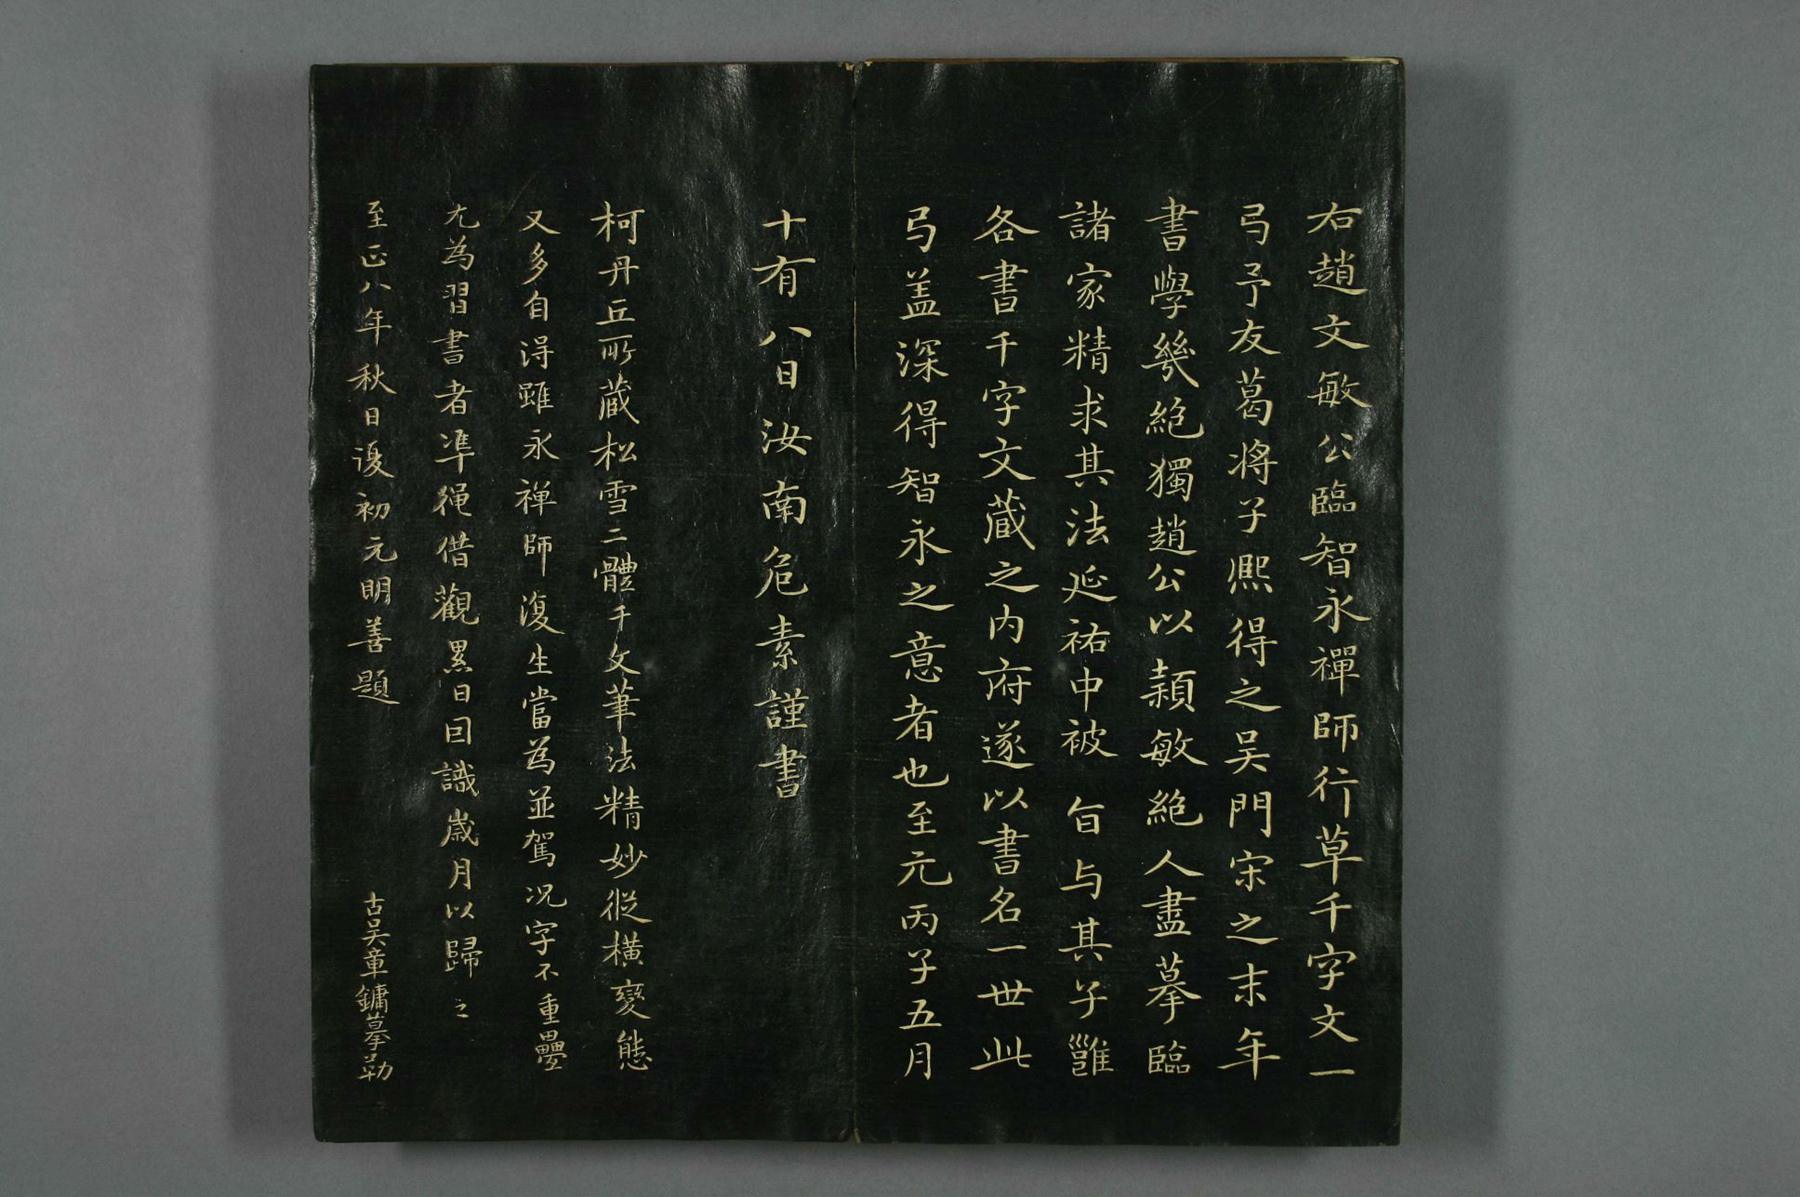 右趙文敏公臨智永禪師行草千字文一
弓予友葛將子熈得之吴門宋之末年
書學幾絶獨趙公以穎敏絶人盡摹臨
諸家精求其法延祐中被 旨与其子雝
各書千字文蔵之内府遂以書名一世此
弓盖深得智永之意者也至元丙子五月
十有八日汝南危素謹書
柯丹丘所蔵松雪二體千文筆法精妙縱橫變態
又多自得雖永禅師復生當為並駕况字不重疊
尤為習書者凖繩借觀累日囙識歲月以歸之
至正八年秋日復初元明善題
古吴章鏞摹勒